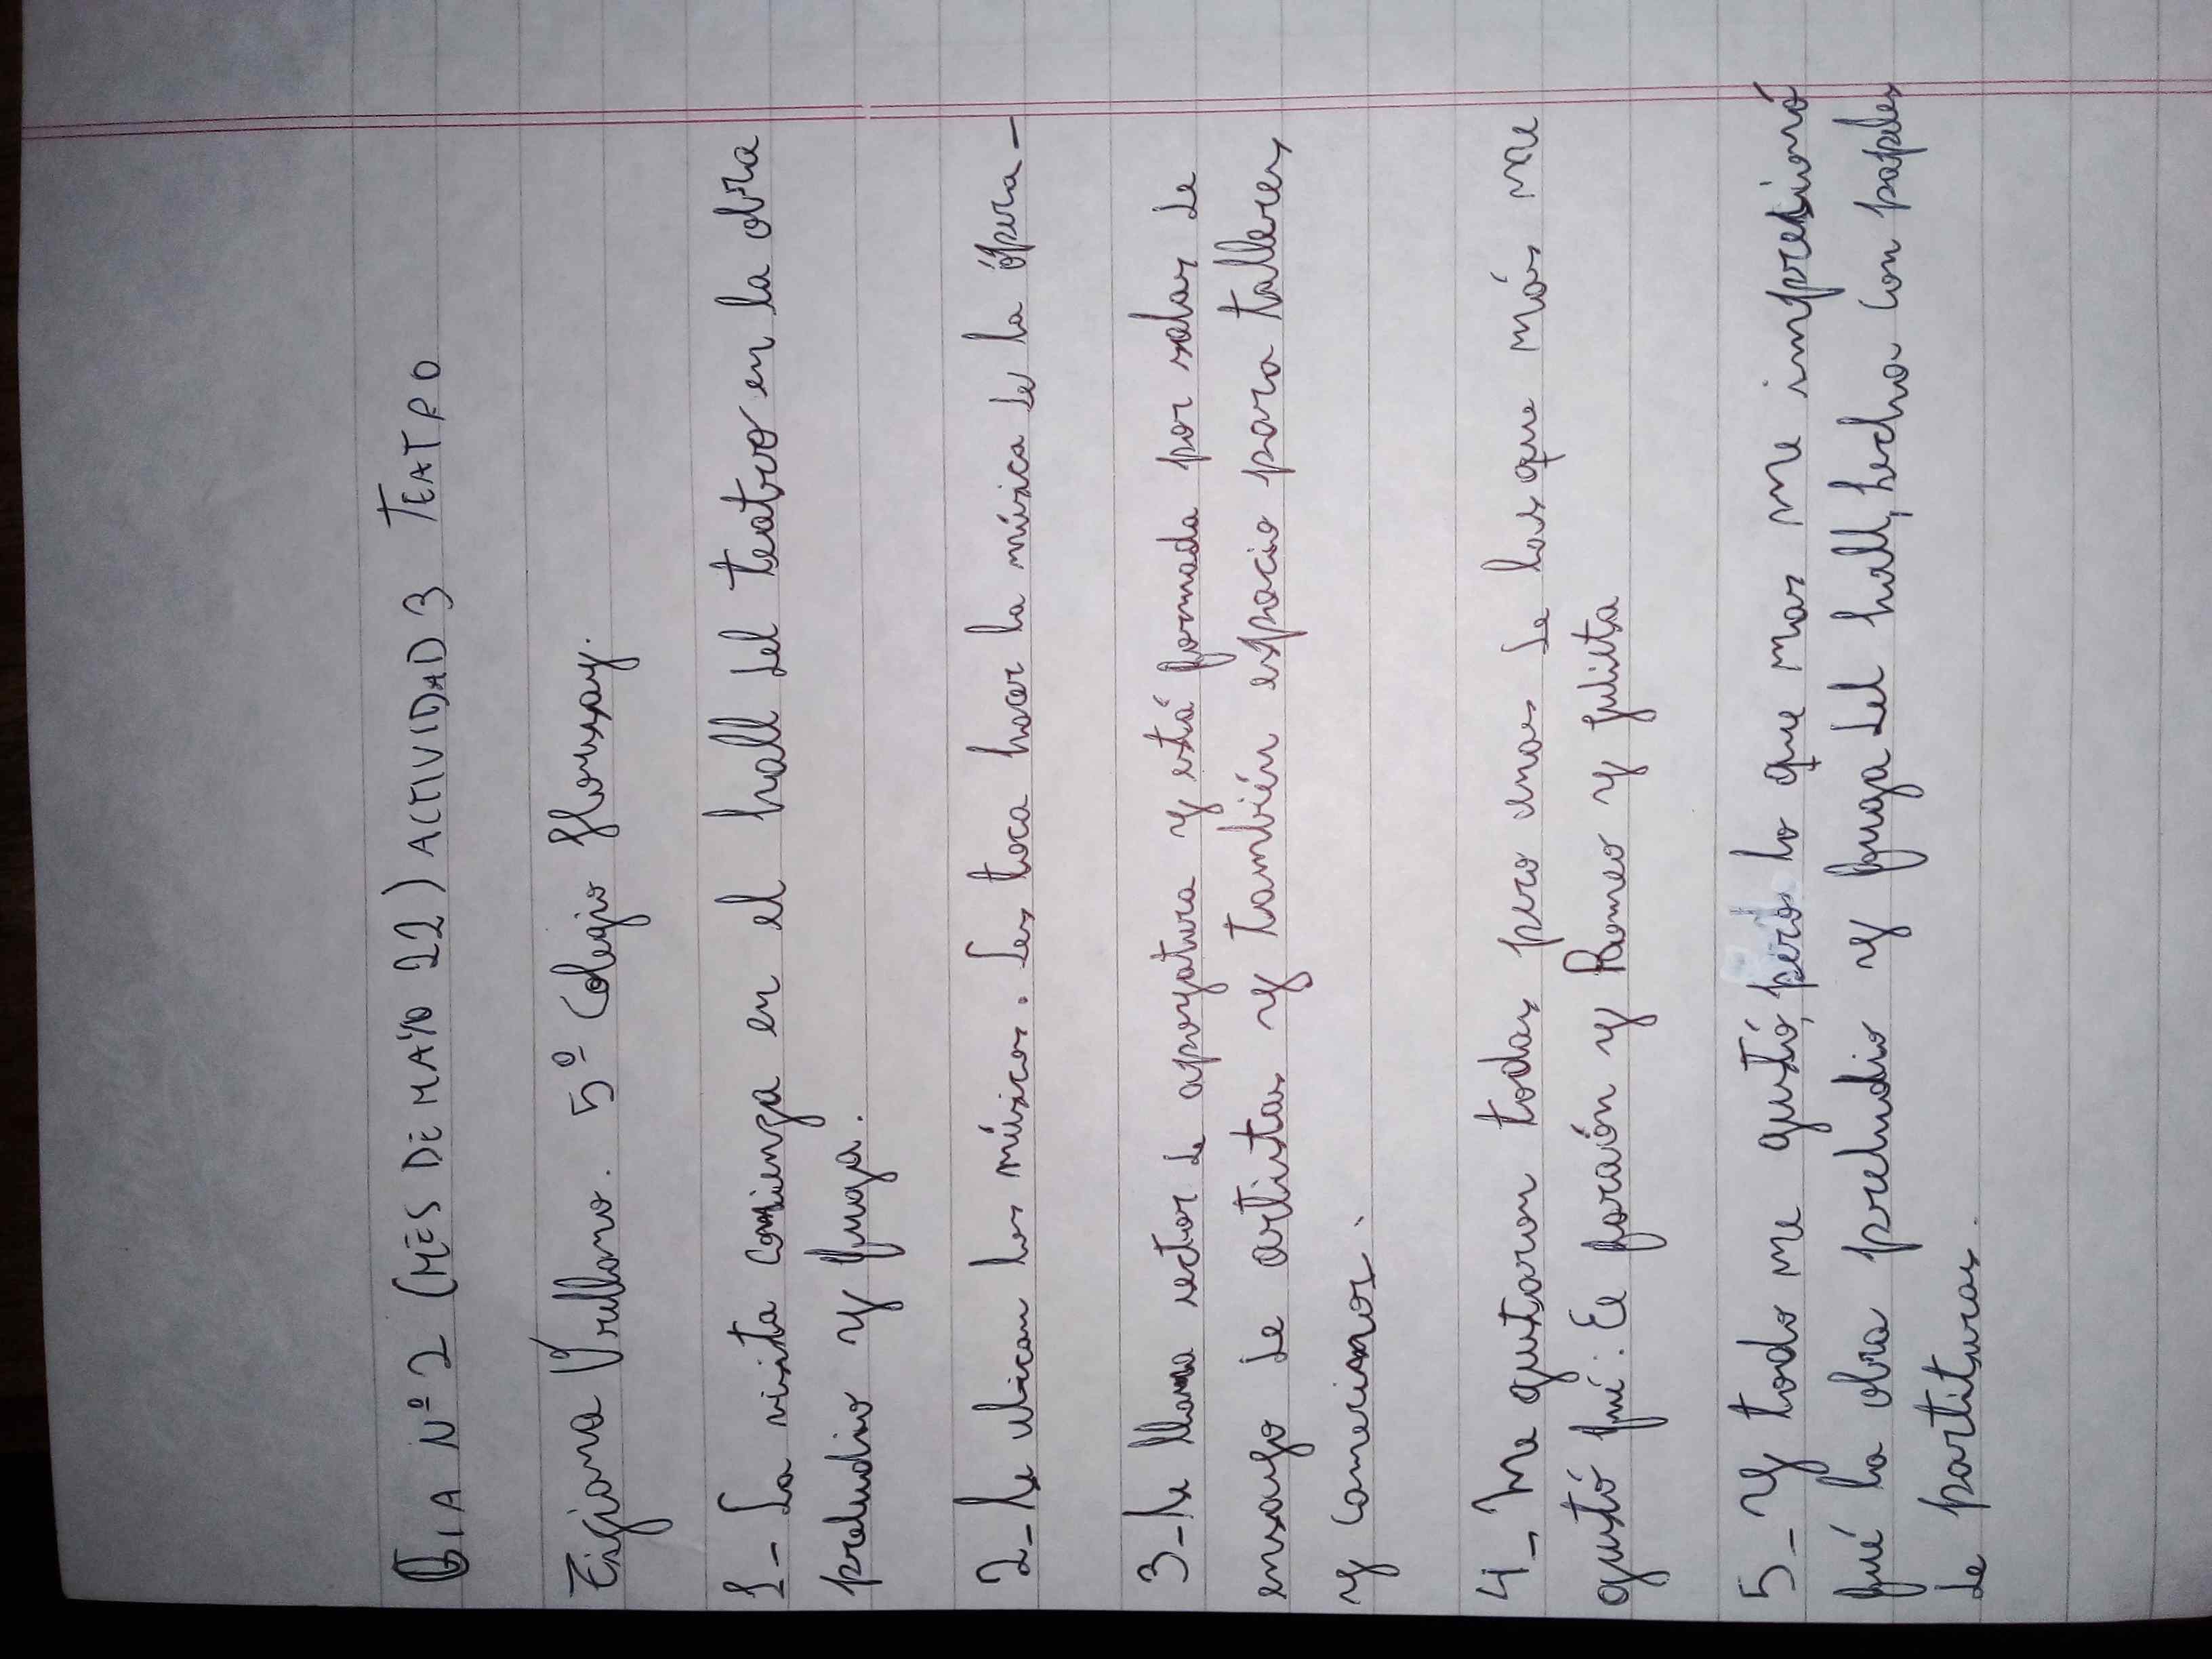 GIA Nº 2 (MES DE MAYO 22) ACTIVIDAD 3 TEATRO
Tiziana Vrillano. 5º Colegio
1_ La visita comienza en el hall del teatro en la obra
preludio y fuga.
2_ Se ubican los músicos. Les toca hacer la música de la ópera_
3_ Se llama sector de apoyatura y está formada por salas de
ensayo de artistas y también espacio para talleres
y camarines.
4_ Me gustaron todas pero unas de las que más me
gustó fué: El faraón y Romeo y Julieta
5_ Y todo me gustó, pero lo que mas me impresionó
fué la obra preludio y fuga del hall, hecha con papeles
de partituras.